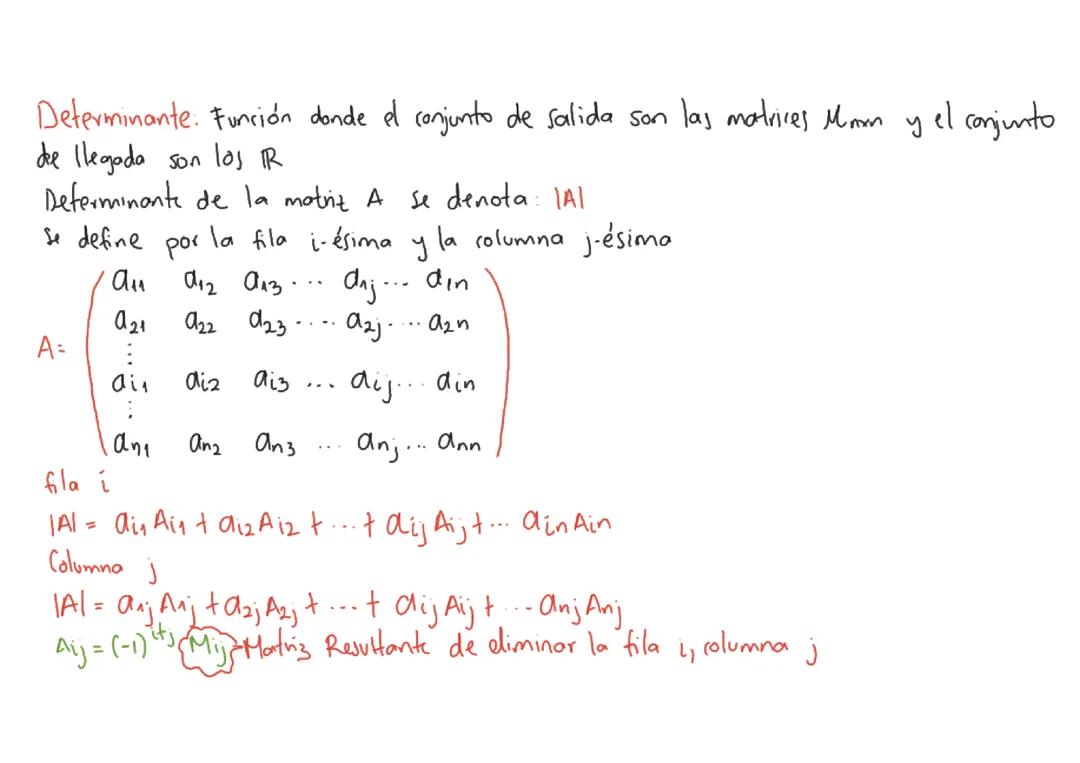 Determinante: Función donde el conjunto de salida son las matrices Mmxn y el conjunto
de llegada son los ℝ
Determinante de la matriz A se denota: |A|
Se define por la fila i-ésima y la columna j-ésima
a11 a12 a13 ... a1j ... a1n
a21 a22 a23 ... a2j ... a2n
A=
⋮
ai1 ai2 ai3 ... aij ... ain
⋮
an1 an2 an3 ... anj ... ann
fila i
|A| = ai1 Ai1 + ai2 Ai2 + ... + aij Aij + ... ain Ain
Columna j
|A| = a1j A1j + a2j A2j + ... + aij Aij + ... anj Anj
Aij = (-1)^i+j Mij → Matriz Resultante de eliminar la fila i, columna j